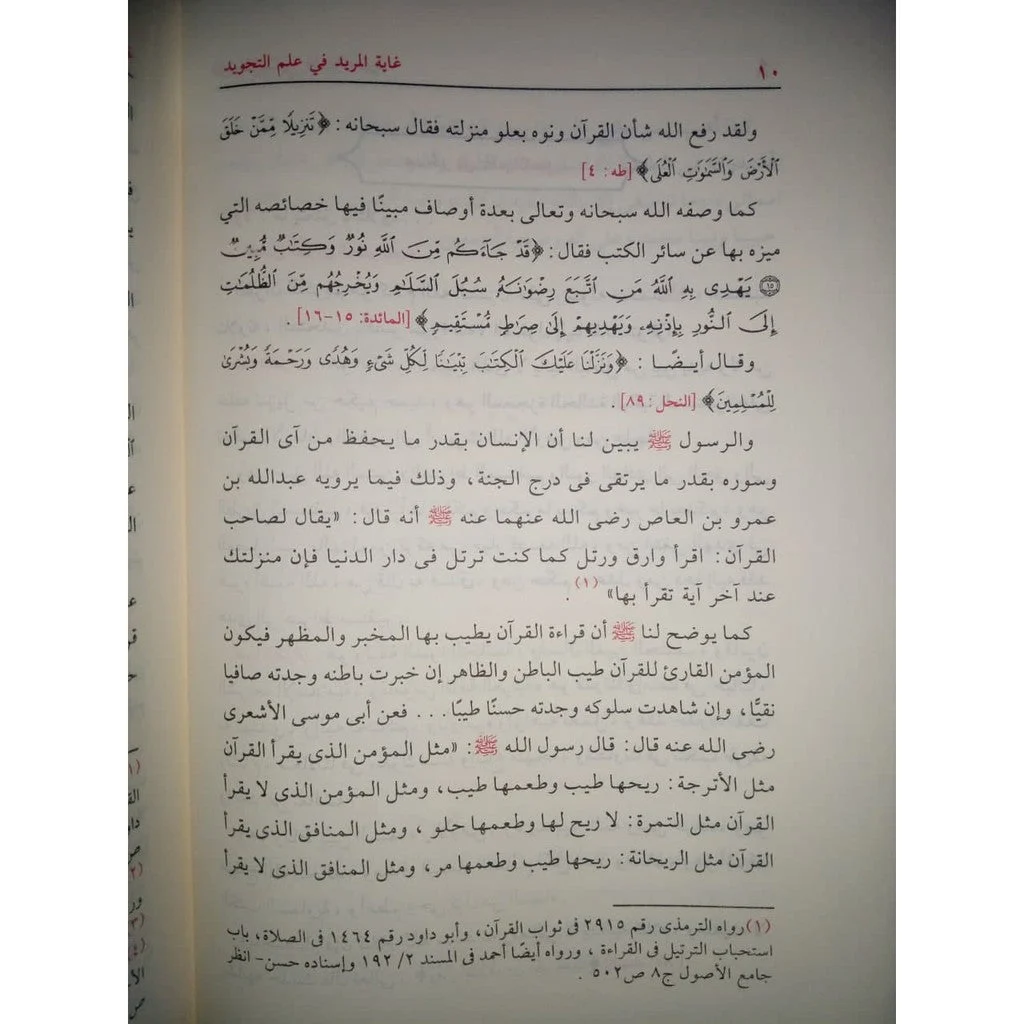 ١٠ غاية المريد في علم التجويد
ولقد رفع الله شأن القرآن ونوه بعلو منزلته فقال سبحانه: ﴿تَنزِيلًا مِّمَّنْ خَلَقَ
ٱلْأَرْضَ وَٱلسَّمَٰوَٰتِ ٱلْعُلَى﴾ [طه: ٤]
كما وصفه الله سبحانه وتعالى بعدة أوصاف مبينًا فيها خصائصه التي
ميزه بها عن سائر الكتب فقال: ﴿قَدْ جَآءَكُم مِّنَ ٱللَّهِ نُورٌ وَكِتَٰبٌ مُّبِينٌ
١٥ يَهْدِى بِهِ ٱللَّهُ مَنِ ٱتَّبَعَ رِضْوَٰنَهُۥ سُبُلَ ٱلسَّلَٰمِ وَيُخْرِجُهُم مِّنَ ٱلظُّلُمَٰتِ
إِلَى ٱلنُّورِ بِإِذْنِهِۦ وَيَهْدِيهِمْ إِلَىٰ صِرَٰطٍ مُّسْتَقِيمٍ﴾ [المائدة: ١٥-١٦].
وقال أيضًا: ﴿وَنَزَّلْنَا عَلَيْكَ ٱلْكِتَٰبَ تِبْيَٰنًا لِّكُلِّ شَىْءٍ وَهُدًى وَرَحْمَةً وَبُشْرَىٰ
لِلْمُسْلِمِينَ﴾ [النحل: ٨٩].
والرسول ﷺ يبين لنا أن الإنسان بقدر ما يحفظ من آى القرآن
وسوره بقدر ما يرتقى فى درج الجنة، وذلك فيما يرويه عبدالله بن
عمرو بن العاص رضى الله عنهما عنه ﷺ أنه قال: «يقال لصاحب
القرآن: اقرأ وارق ورتل كما كنت ترتل في دار الدنيا فإن منزلتك
عند آخر آية تقرأ بها» (١).
كما يوضح لنا ﷺ أن قراءة القرآن يطيب بها المخبر والمظهر فيكون
المؤمن القارئ للقرآن طيب الباطن والظاهر إن خبرت باطنه وجدته صافيا
نقيًّا، وإن شاهدت سلوكه وجدته حسنًا طيبًا... فعن أبى موسى الأشعرى
رضى الله عنه قال: قال رسول الله ﷺ: «مثل المؤمن الذى يقرأ القرآن
مثل الأترجة: ريحها طيب وطعمها طيب، ومثل المؤمن الذى لا يقرأ
القرآن مثل التمرة: لا ريح لها وطعمها حلو، ومثل المنافق الذى يقرأ
القرآن مثل الريحانة: ريحها طيب وطعمها مر، ومثل المنافق الذى لا يقرأ
(١) رواه الترمذى رقم ٢٩١٥ فى ثواب القرآن، وأبو داود رقم ١٤٦٤ فى الصلاة، باب
استحباب الترتيل فى القراءة، ورواه أيضًا أحمد فى المسند ٢/ ١٩٢ وإسناده حسن- انظر
جامع الأصول ج٨ ص٥٠٢.